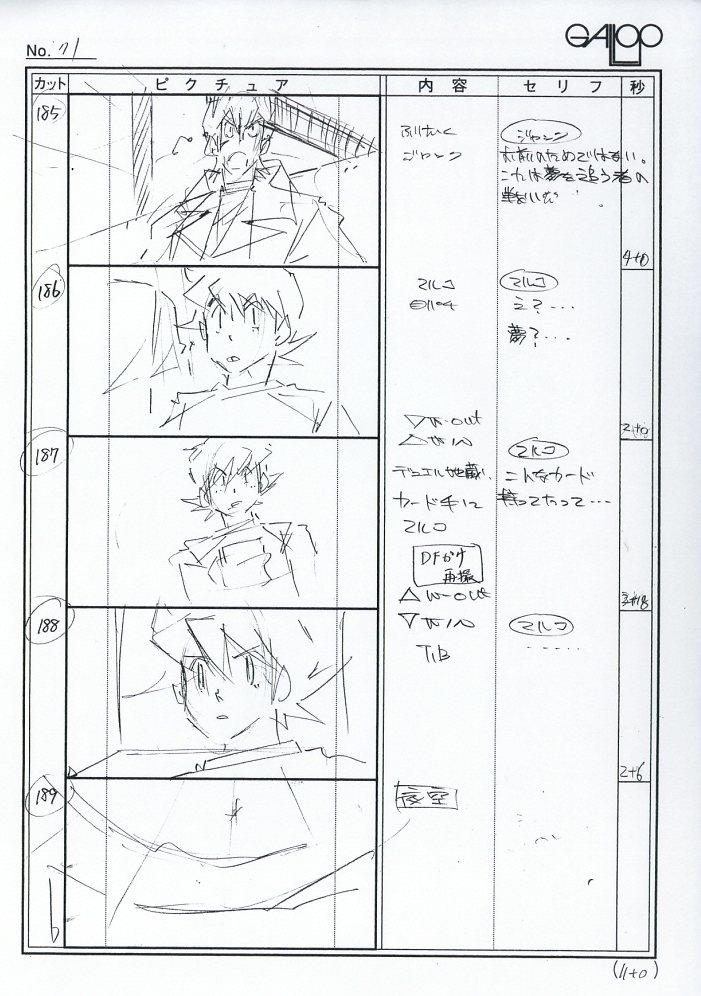 GALLOP
No. 71
カット ピクチュア 内容 セリフ 秒
185
ふりむく
ジャン
ジャン
お前のためではない。
これは夢を追う者の
戦いだ
4+0
186
マルコ
マルコ
え?・・・
夢?・・・
2+0
▽W・OUT
△W・IN
187
カード手に
マルコ
マルコ
こんなカード
持ってたって・・・
DFかけ
再撮
△W-OUT
3+18
188
▽W・IN
T.B
マルコ
・・・・・
2+6
189
夜空
(11+0)